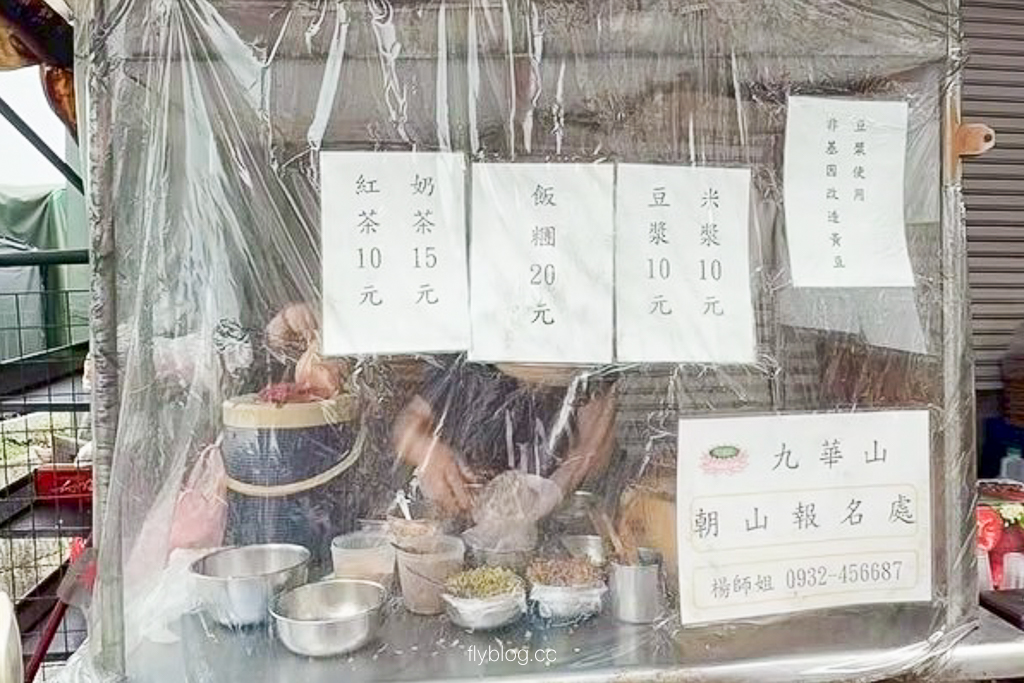 紅茶10元
奶茶15元
飯糰20元
豆漿10元
米漿10元
豆漿使用
非基因改造黃豆
九華山
朝山報名處
楊師姐 0932-456687
flyblog.cc